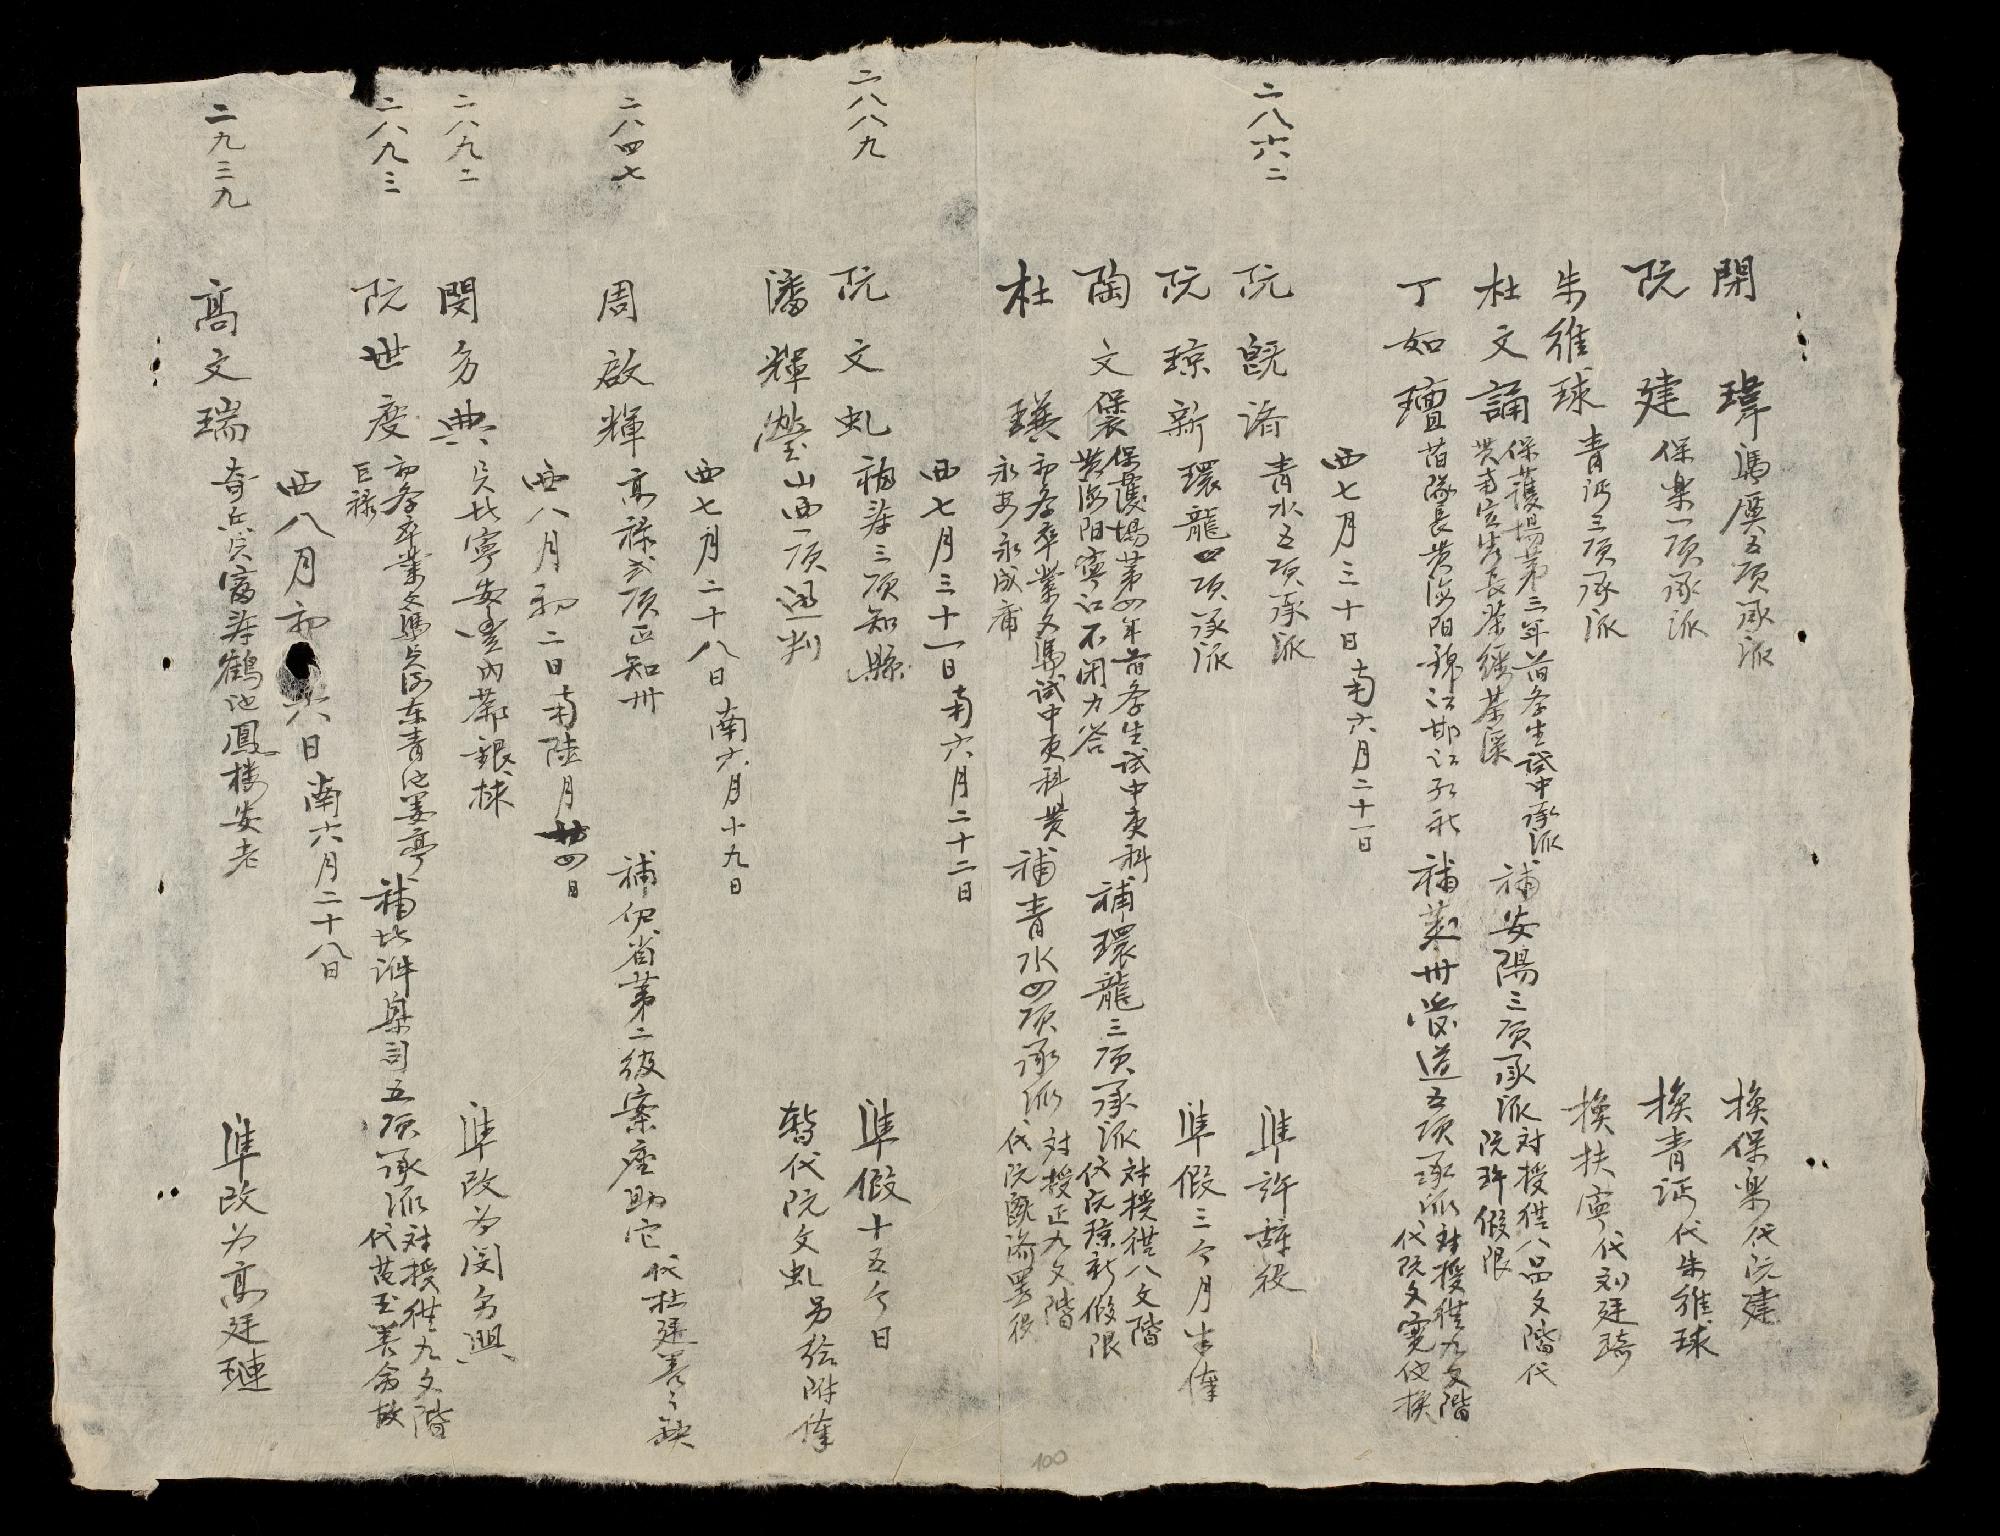 閉 瑋 馮 五項承派 換保樂代阮建
阮 建 保樂一項承派 換青沔代朱維球
朱維球 青沔三項承派 換扶寧代刘廷琦
杜文誦 保護場第三年前学生試中承派 補安陽三項承派 対授從八品文階代
阮許假限
丁如璮 前隊長 海阳錦江邯江 補 卅 道五項承派 対授從九文階
代阮文寬他換
西七月三十日南六月二十一日
二八六二 阮既濟 青水五項承派 準許辞役
阮琼新 環龍四項承派 準假三个月半俸
陶文褒 保護場第四年前学生試中吏科 補環龍三項承派 対授從八文階
海阳寧江不閑力答 代阮琼新假限
杜 瑛 初学卒業文馮試中吏科 補青水四項承派 対授正九文階
永安永成甫 代阮既濟罢役
西七月三十一日南六月二十二日
二八八九 阮文虬 福寿三項知縣 準假十五个日
潘輝瀅 山西一項通判 暫代阮文虬另給附俸
西七月二十八日南六月十九日
二八四七 周啟輝 高祿弍項正知州 補 省第二級案座助 代杜廷善之缺
西八月初二日南陸月廿四日
二八九二 閔多典 北寧安豐內 銀 準改为閔多興
二八九三 阮世慶 初学卒業文馮 海东青池 亭 補北 臬司五項承派 対授從九文階
巨祿 代 玉善命故
西八月初六日南六月二十八日
二九三九 高文瑞 奇兵 富寿鶴池鳳楼安老 準改为高廷璉
100